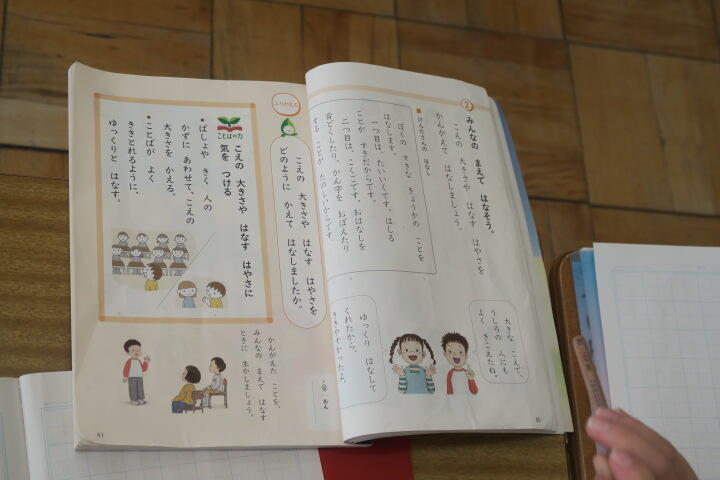 ②
みんなの まえで はなそう。
こえの 大きさや はなす はやさを
かんがえて はなしましょう。
■ けんたさんの はなし
ぼくの すきな きょうかの ことを
はなします。
一つ目は、たいいくです。はしる
ことが すきだからです。
二つ目は、こくごです。おはなしを
音どくしたり、かん字を おぼえたり
する ことが たのしいからです。
大きな こえで、
うしろの 人にも
よく きこえたね。
ゆっくり はなして
くれたから、
ききやすかったよ。
ふりかえる
こえの 大きさや はなす はやさを
どのように かえて はなしましたか。
ことばの力
こえの 大きさや はなす はやさに
気を つける
●ばしょや きく 人の
かずに あわせて、こえの
大きさを かえる。
●ことばが よく
ききとれるように、
ゆっくりと はなす。
かんがえた ことを、
みんなの まえで はなす
ときに 生かしましょう。
音
おん